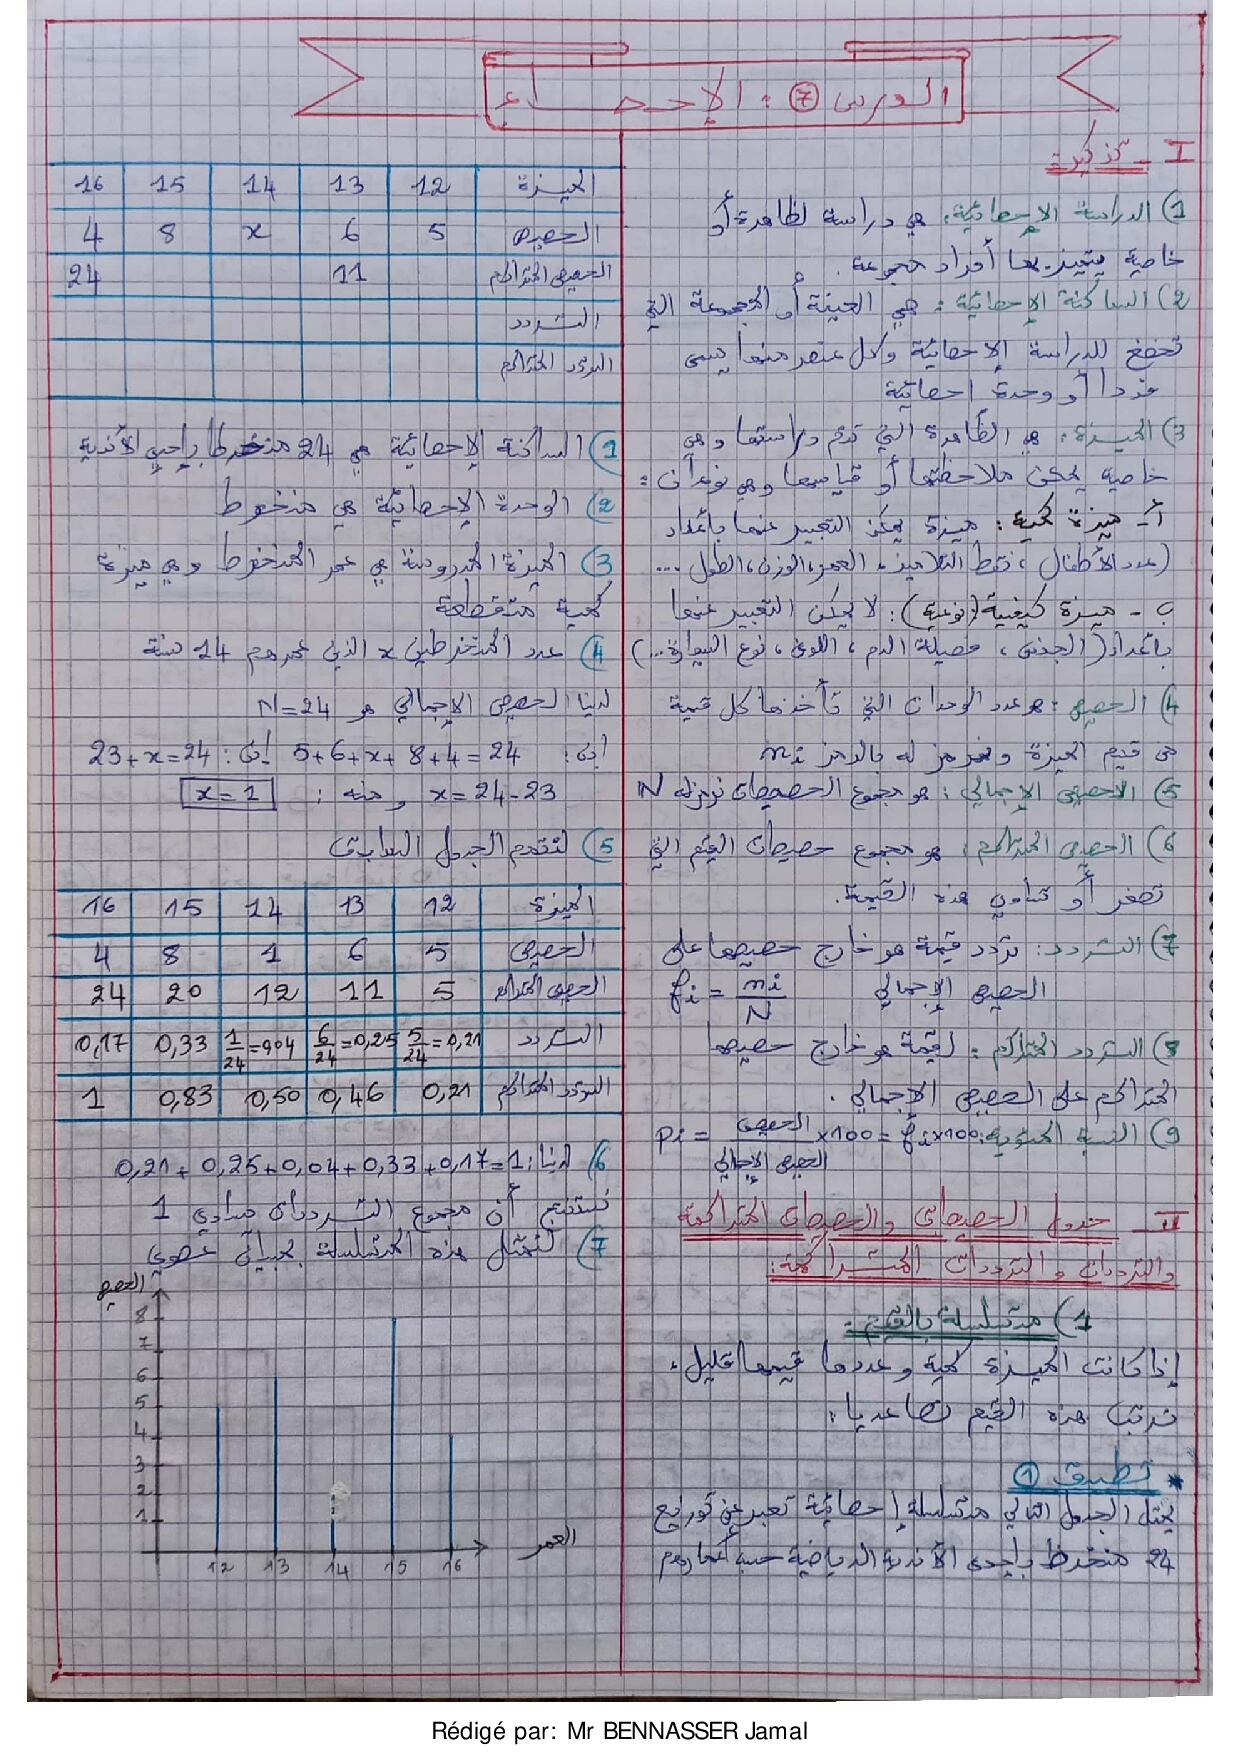 الدرس 7 : الإحصاء
I - تذكرة
1) الدراسة الإحصائية: هي دراسة لظاهرة أو
خاصية يتميز بها أفراد مجموعة.
2) الساكنة الإحصائية: هي العينة أو المجموعة التي
تخضع للدراسة الإحصائية وكل عنصر منها يسمى
فردا أو وحدة إحصائية
3) الميزة: هي الظاهرة التي تتم دراستها وهي
خاصية يمكن ملاحظتها أو قياسها وهي نوعان:
أ - ميزة كمية: ميزة يمكن التعبير عنها بأعداد
(عدد الأطفال، نقط التلاميذ، العمر، الوزن، الطول ...
ب - ميزة كيفية (نوعية): لا يمكن التعبير عنها
بأعداد (الجنس، فصيلة الدم، اللون، نوع السيارة...)
4) الحصيص: هو عدد الوحدات التي تأخذها كل قيمة
من قيم الميزة ونرمز له بالرمز ni
5) الحصيص الإجمالي: هو مجموع الحصيصات نرمز له N
6) الحصيص المتراكم: هو مجموع حصيصات القيم التي
تصغر أو تساوي هذه القيمة.
7) التردد: تردد قيمة هو خارج حصيصها على
الحصيص الإجمالي fi = ni/N
8) التردد المتراكم: لقيمة هو خارج حصيصها
المتراكم على الحصيص الإجمالي.
9) النسبة المئوية: pi = الحصيص/الحصيص الإجمالي ×100 = fi×100
II - جدول الحصيصات والحصيصات المتراكمة
والترددات و الترددات المتراكمة:
1) متسلسلة بالقيم:
إذا كانت الميزة كمية وعدد قيمها قليل،
نرتب هذه القيم تصاعديا:
* تطبيق 1
يمثل الجدول التالي متسلسلة إحصائية تعبر عن توزيع
24 منخرط بإحدى الأندية الرياضية حسب أعمارهم
الميزة 12 13 14 15 16
الحصيص 5 6 x 8 4
الحصيص المتراكم 11 24
التردد
التردد المتراكم
1) الساكنة الإحصائية هي 24 منخرطا بإحدى الأندية
2) الوحدة الإحصائية هي منخرط
3) الميزة المدروسة هي عمر المنخرط وهي ميزة
كمية متقطعة
4) عدد المنخرطين x الذين عمرهم 14 سنة
لدينا الحصيص الإجمالي هو N=24
إذن: 5+6+x+8+4=24 أي: 23+x=24
x=24-23 ومنه: x=1
5) لنتمم الجدول السابق
الميزة 12 13 14 15 16
الحصيص 5 6 1 8 4
الحصيص المتراكم 5 11 12 20 24
التردد 5/24=0,21 6/24=0,25 1/24=0,04 0,33 0,17
التردد المتراكم 0,21 0,46 0,50 0,83 1
6) لدينا: 0,21+0,25+0,04+0,33+0,17=1
نستنتج أن مجموع الترددات يساوي 1
7) لنمثل هذه المتسلسلة بمبيان عصوي
الحصيص
8
7
6
5
4
3
2
1
12 13 14 15 16
العمر
Rédigé par: Mr BENNASSER Jamal